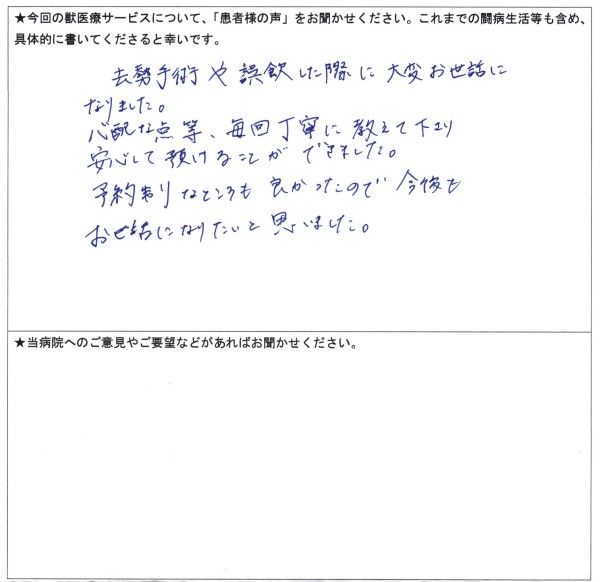 ★今回の獣医療サービスについて、「患者様の声」をお聞かせください。これまでの闘病生活等も含め、
具体的に書いてくださると幸いです。
去勢手術や誤飲した際に大変お世話に
なりました。
心配な点等、毎回丁寧に教えて下さり
安心して預けることができました。
予約制なところも良かったので今後も
お世話になりたいと思いました。
★当病院へのご意見やご要望などがあればお聞かせください。